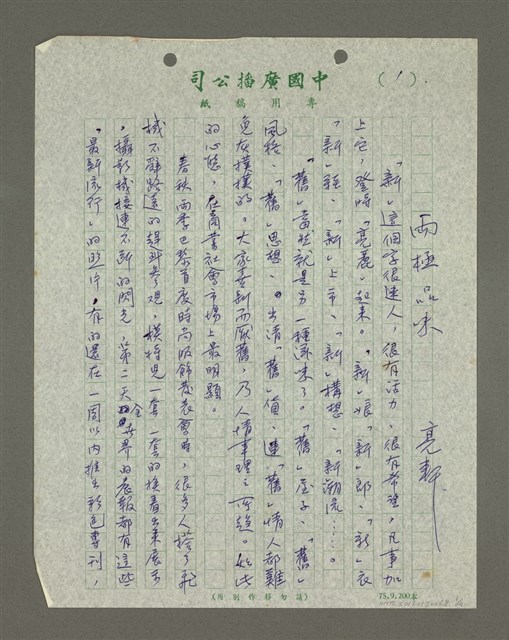 中國廣播公司
專用稿紙
(1).
兩極品味
亮軒
「新」這個字很迷人,很有活力、很有希望,凡事加
上它,登時「亮麗」起來。「新」娘「新」郎、「新」衣
「新」鞋、「新」上市、「新」構想、「新」潮流……。
「舊」當然就是另一種滋味了。「舊」屋子、「舊」
風格、「舊」思想、出清「舊」貨、連「舊」情人都難
免灰撲撲的。大家喜新而厭舊,乃人情事理之所趨。如此
的心態,在商業社會市場上最明顯。
春秋兩季巴黎首度時尚服飾發表會時,很多人搭了飛
機不辭路遠的趕到參觀,模特兒一套一套的換着出來展示
,攝影機接連不斷的閃光,第二天全世界的晨報都有這些
「最新流行」的照片,有的還在一周以內推出彩色專刊,
(請勿移作別用)
75.9.200本